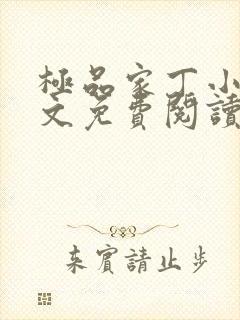 極品家丁小
文免費閱讀
来賓請止步